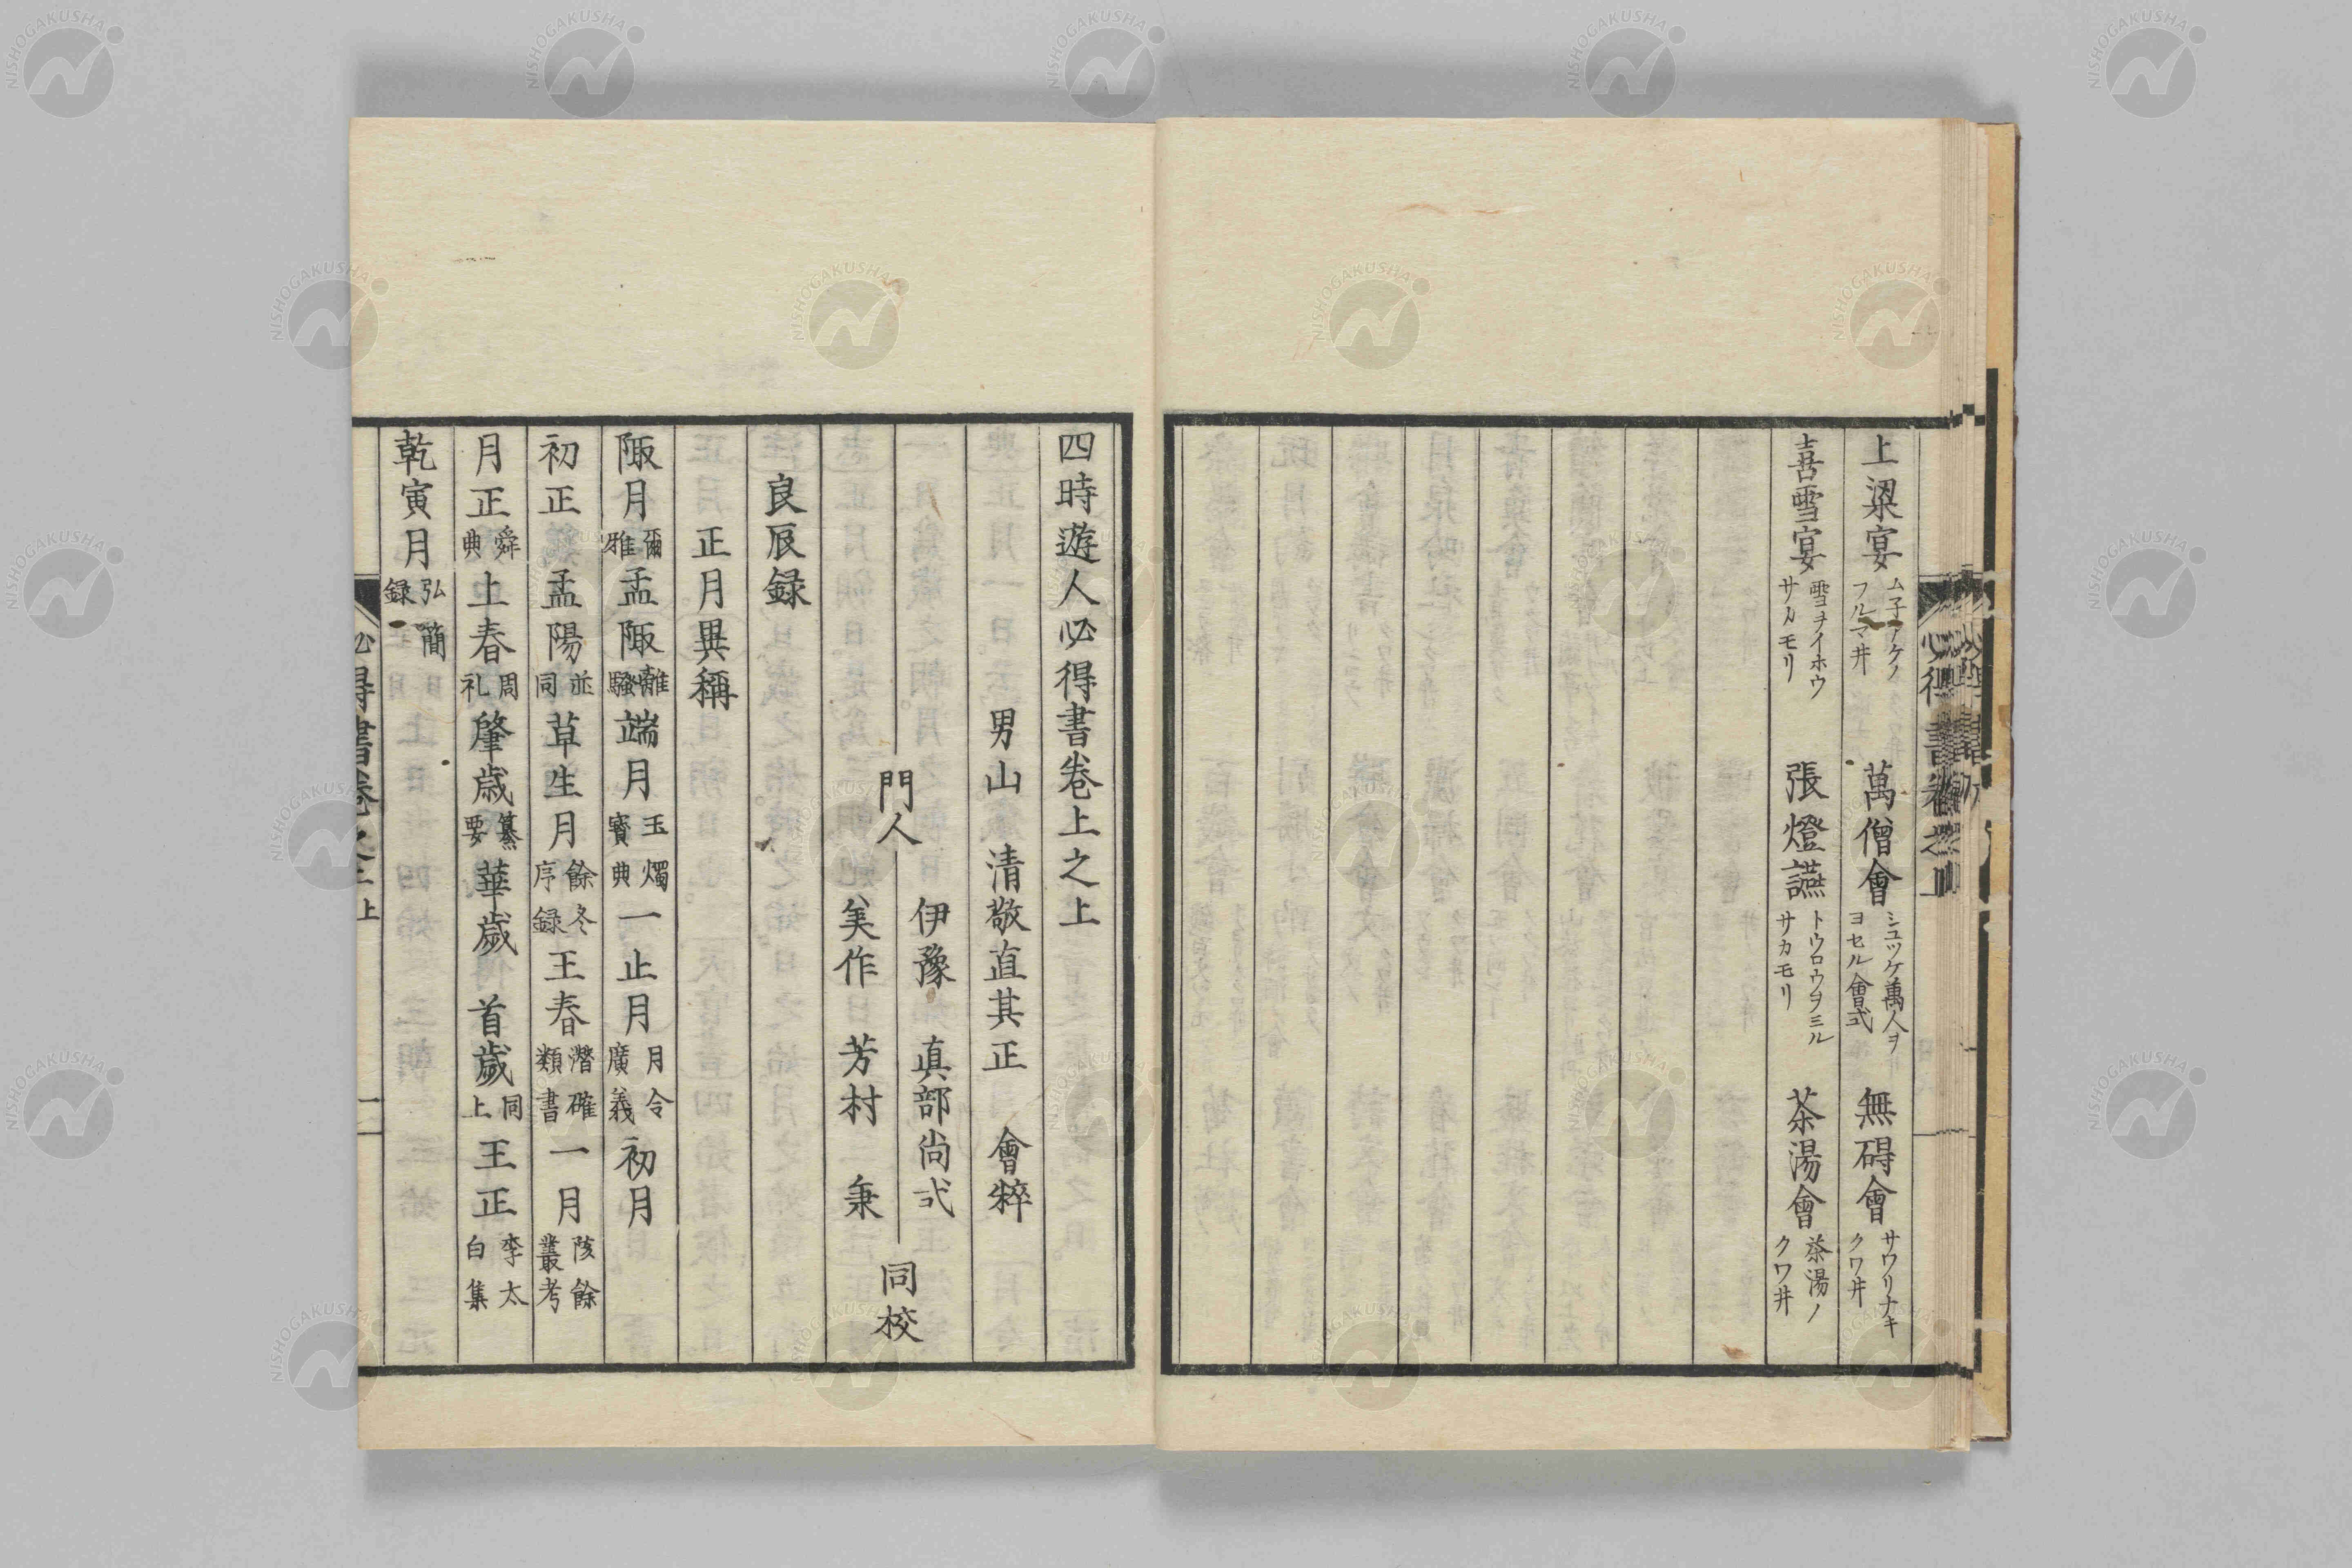 上梁宴 ム子アケノフルマ井 萬僧會 シュツケ萬人ヲヨセル會式 無碍會 サワリナキクワ井
喜雪宴 雪ヲイホウサカモリ 張燈讌 トウロウヲミルサカモリ 茶湯會 茶湯ノクワ井
四時遊人必得書卷上之上
男山 清敬直其正 會粹
門人 伊豫 真部尚弍
美作 芳村一秉 同校
良辰録
正月異稱
陬月 爾雅 孟陬 離騷 端月 玉燭寳典 一止月 月令廣義 初月
初正 孟陽 並同 草生月 餘冬序録 王春 潛確類書 一月 陔餘叢考
月正 舜典 上春 周礼 肇歳 纂要 華歳 首歳 同上 王正 李太白集
乾寅月 弘簡録
必得書卷之上 一
NISHOGAKUSHA